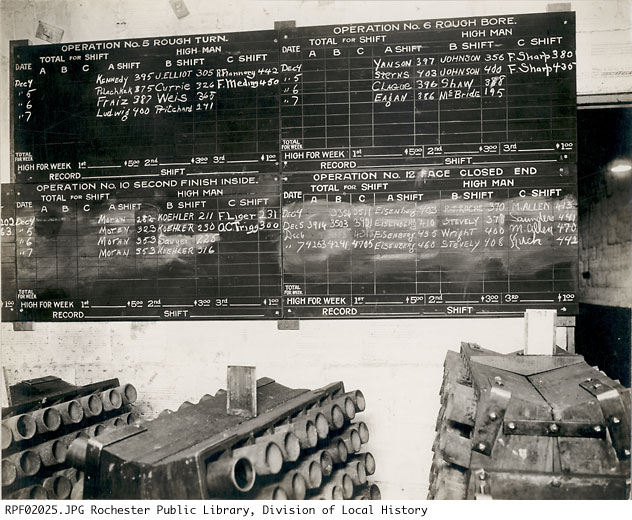 OPERATION No. 5 ROUGH TURN.
TOTAL FOR SHIFT HIGH MAN
DATE A B C A SHIFT B SHIFT C SHIFT
Dec 4 Kennedy 395 J. ELLIOT 305 442
" 5 375 Currie 326 F. Meding 450
" 6 Fraiz 387 Weis 365
" 7 Ludwig 400 Pritchard 241
TOTAL FOR WEEK
HIGH FOR WEEK 1st $5.00 2nd $3.00 3rd $1.00
RECORD SHIFT
OPERATION No. 6 ROUGH BORE.
TOTAL FOR SHIFT HIGH MAN
DATE A B C A SHIFT B SHIFT C SHIFT
Dec 4 YANSON 397 JOHNSON 356 F. Sharp 380
" 5 STERNS 403 JOHNSON 400 F. Sharp 430
" 6 CLAGUE 396 Shaw 388
" 7 EAGAN 356 McBride 195
TOTAL FOR WEEK
HIGH FOR WEEK 1st $5.00 2nd $3.00 3rd $1.00
RECORD SHIFT
OPERATION No. 10 SECOND FINISH INSIDE.
TOTAL FOR SHIFT HIGH MAN
DATE A B C A SHIFT B SHIFT C SHIFT
Dec 4 MORAN 282 KOEHLER 211 F. Liger 231
" 5 MORAN 323 KOEHLER 230 300
" 6 MORAN 353 220
" 7 MORAN 353 KOEHLER 316
TOTAL FOR WEEK
HIGH FOR WEEK 1st $5.00 2nd $3.00 3rd $1.00
RECORD SHIFT
OPERATION No. 12 FACE CLOSED END
TOTAL FOR SHIFT HIGH MAN
DATE A B C A SHIFT B SHIFT C SHIFT
Dec 4 Eisenberg 370 M. ALLEN
Dec 5 3503 Eisenberg STEVELY 371 Saunders 441
Dec 6 EISENBERG 435 Wright 400 M. Allen 470
" 7 4241 4705 EISENBERG 460 Stevely 408
TOTAL FOR WEEK
HIGH FOR WEEK 1st $5.00 2nd $3.00 3rd $1.00
RECORD SHIFT
RPF02025.JPG Rochester Public Library, Division of Local History